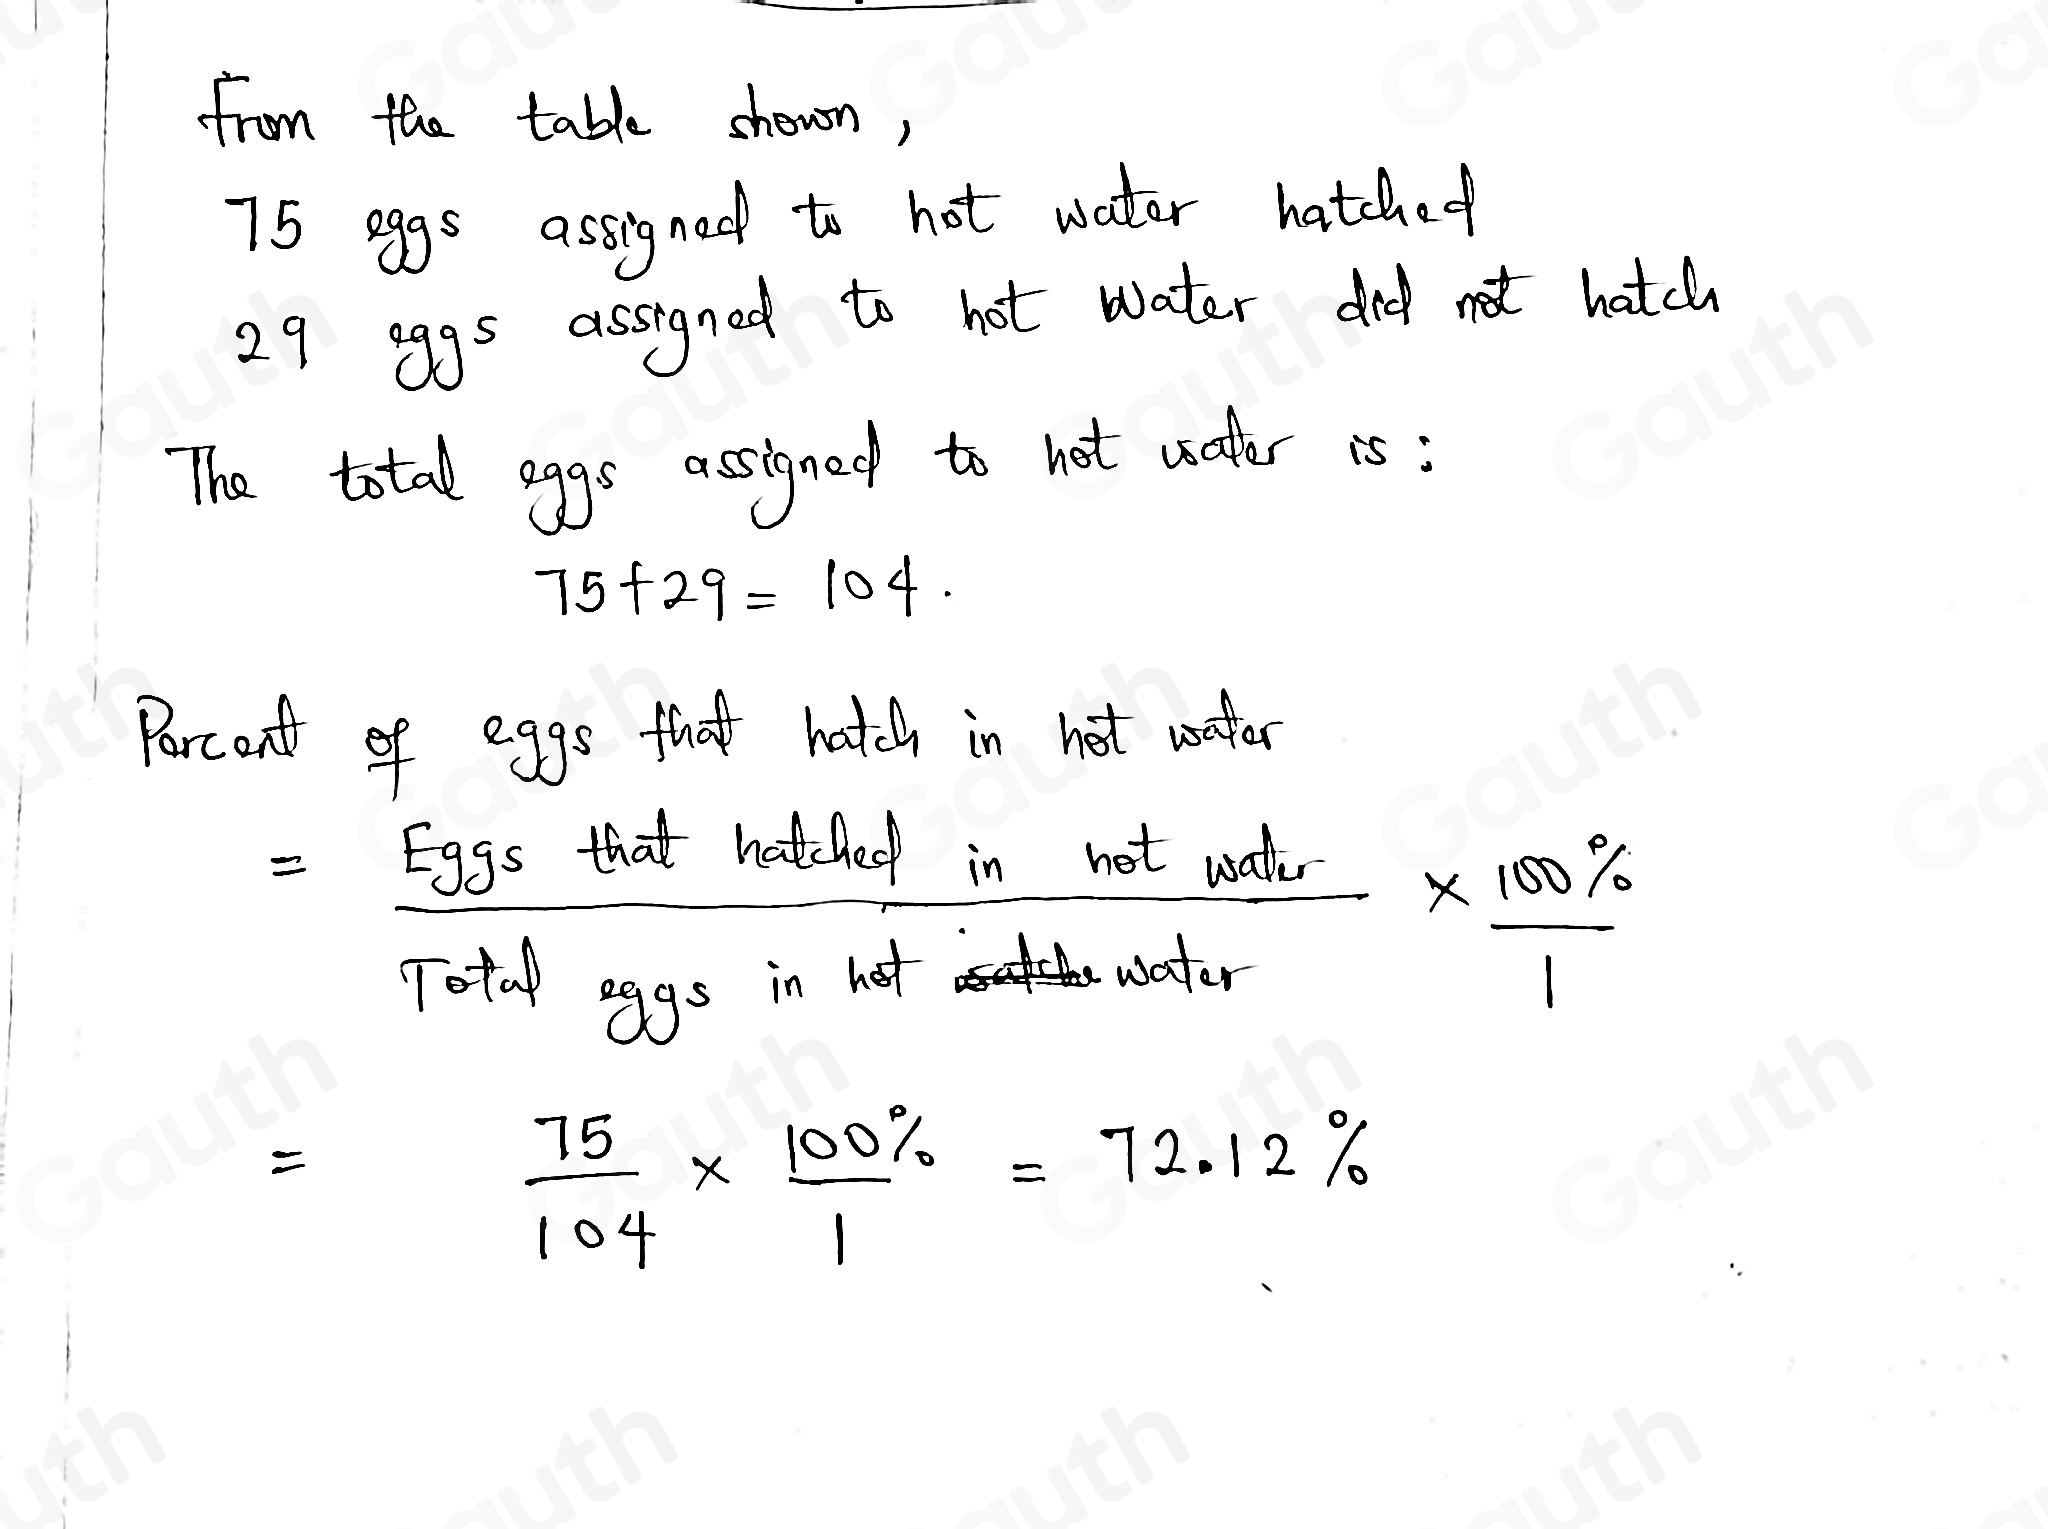 From the table shown,
75 eggs assigned to hot water hatched
29 eggs assigned to hot water did not hatch
The total eggs assigned to hot water is:
75+29= 104.
Percent of eggs that hatch in hot water
= Eggs that hatched in hot water × 100%
Total eggs in hot water 1
= 75 × 100% = 72.12%
104 1
Gauth